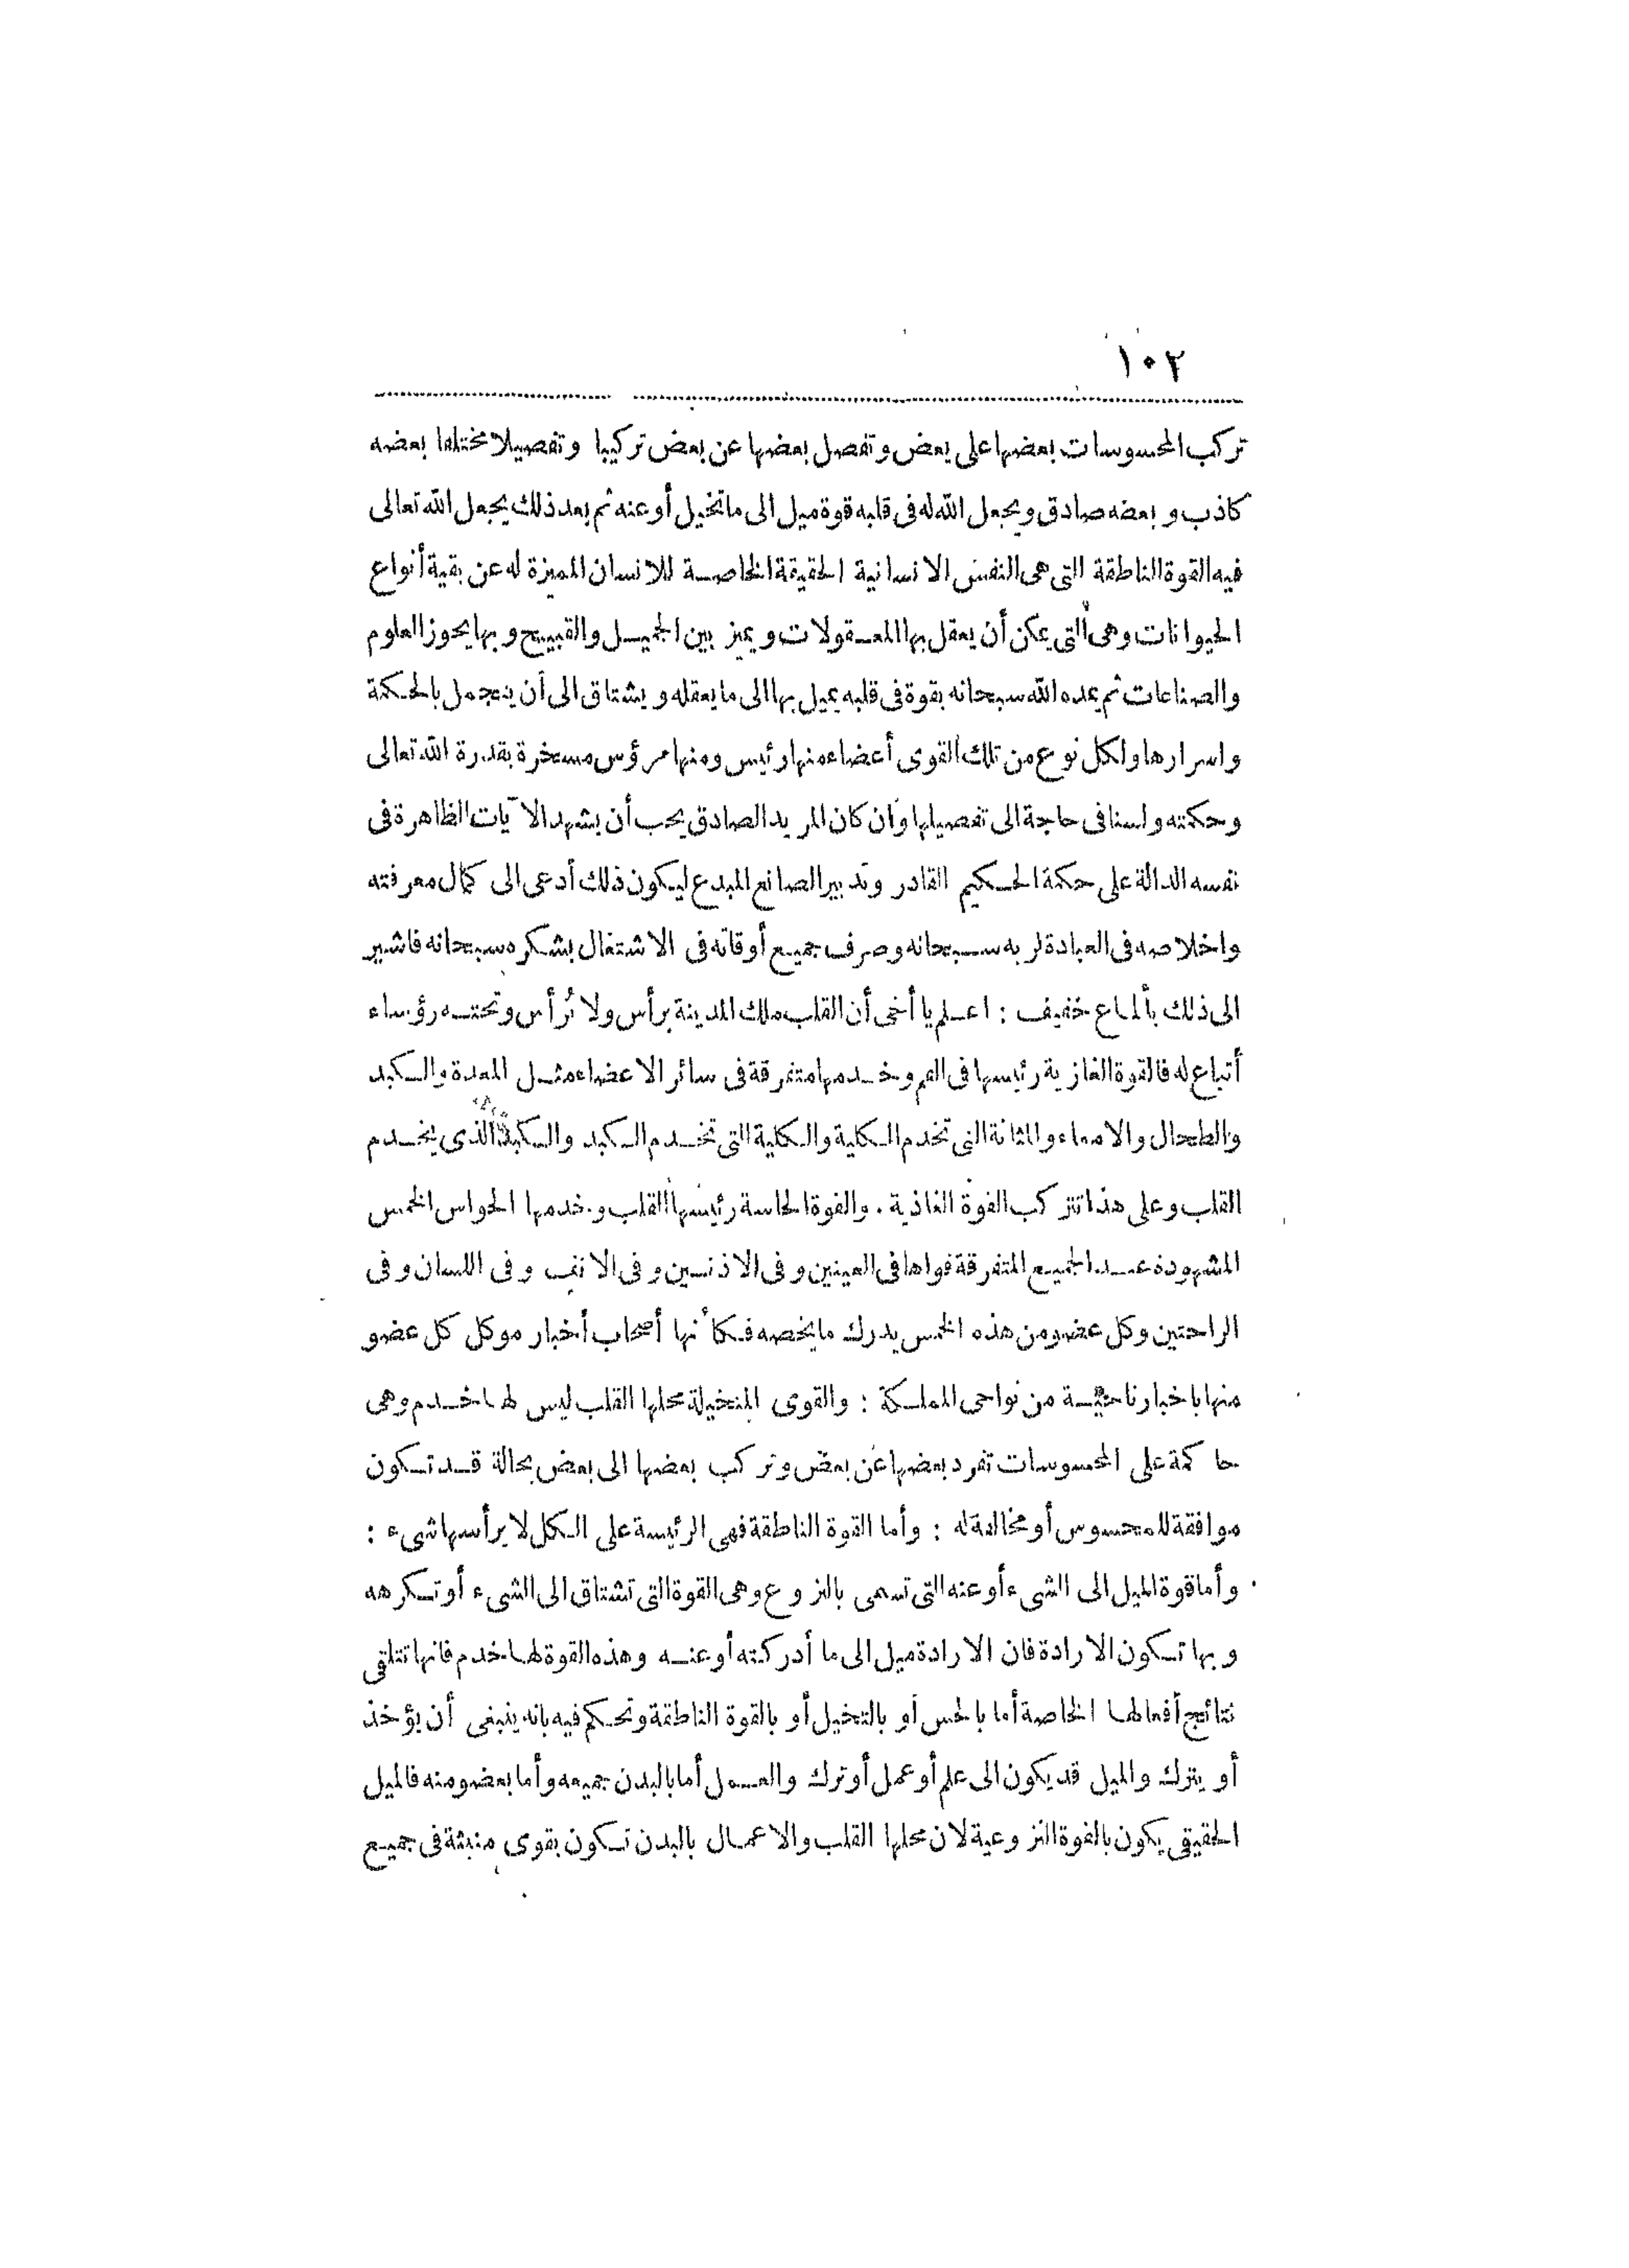 ١٠٢
تركب المحسوسات بعضها على بعض وتفصل بعضها عن بعض تركيبا وتفصيلا مختلفا بعضه
كاذب وبعضه صادق ويجعل الله له فى قلبه قوة ميل الى ما تخيل أو عنه ثم بعد ذلك يجعل الله تعالى
فيه القوة الناطقة التى هى النفس الانسانية الحقيقة الخاصة للانسان المميزة له عن بقية أنواع
الحيوانات وهى التى يمكن أن يعقل بها المعقولات ويميز بين الجميل والقبيح وبها يحوز العلوم
والصناعات ثم يمده الله سبحانه بقوة فى قلبه يميل بها الى ما يعقله ويشتاق الى أن يتجمل بالحكمة
واسرارها ولكل نوع من تلك القوى أعضاء منها رئيس ومنها مرؤس مسخرة بقدرة الله تعالى
وحكمته ولسنا فى حاجة الى تفصيلها وان كان المريد الصادق يحب أن يشهد الآيات الظاهرة فى
نفسه الدالة على حكمة الحكيم القادر وتدبير الصانع المبدع ليكون ذلك أدعى الى كمال معرفته
واخلاصه فى العبادة لربه سبحانه وصرف جميع أوقاته فى الاشتغال بشكره سبحانه فاشير
الى ذلك بألماع خفيف : اعلم يا أخى أن القلب ملك المدينة يرأس ولا يُرأس وتحته رؤساء
أتباع له فالقوة الغازية رئيسها فى الفم وخدمها متفرقة فى سائر الاعضاء مثل المعدة والكبد
والطحال والامعاء والمثانة التى تخدم الكلية والكلية التى تخدم الكبد والكبد الذى يخدم
القلب وعلى هذا تتركب القوة الغاذية . والقوة الحاسة رئيسها القلب وخدمها الحواس الخمس
المشهودة عند الجميع المتفرقة قواها فى العينين وفى الاذنين وفى الانف وفى اللسان وفى
الراحتين وكل عضو من هذه الخمس يدرك ما يخصه فكأنها أصحاب أخبار موكل كل عضو
منها باخبار ناحية من نواحى المملكة : والقوى المتخيلة محلها القلب ليس لها خدم وهى
حاكمة على المحسوسات تفرد بعضها عن بعض وتركب بعضها الى بعض بحالة قد تكون
موافقة للمحسوس أو مخالفة له : وأما القوة الناطقة فهى الرئيسة على الكل لا يرأسها شىء :
وأما قوة الميل الى الشىء أو عنه التى تسمى بالنزوع وهى القوة التى تشتاق الى الشىء أو تكرهه
وبها تكون الارادة فان الارادة ميل الى ما أدركته أو عنه وهذه القوة لها خدم فانها تتلقى
نتائج أفعالها الخاصة أما بالحس أو بالتخيل أو بالقوة الناطقة وتحكم فيه بانه ينبغى أن يؤخذ
أو يترك والميل قد يكون الى علم أو عمل أو ترك والعمل أما بالبدن جميعه وأما بعضو منه فالميل
الحقيقى يكون بالقوة النزوعية لان محلها القلب والاعمال بالبدن تكون بقوى منبثة فى جميع